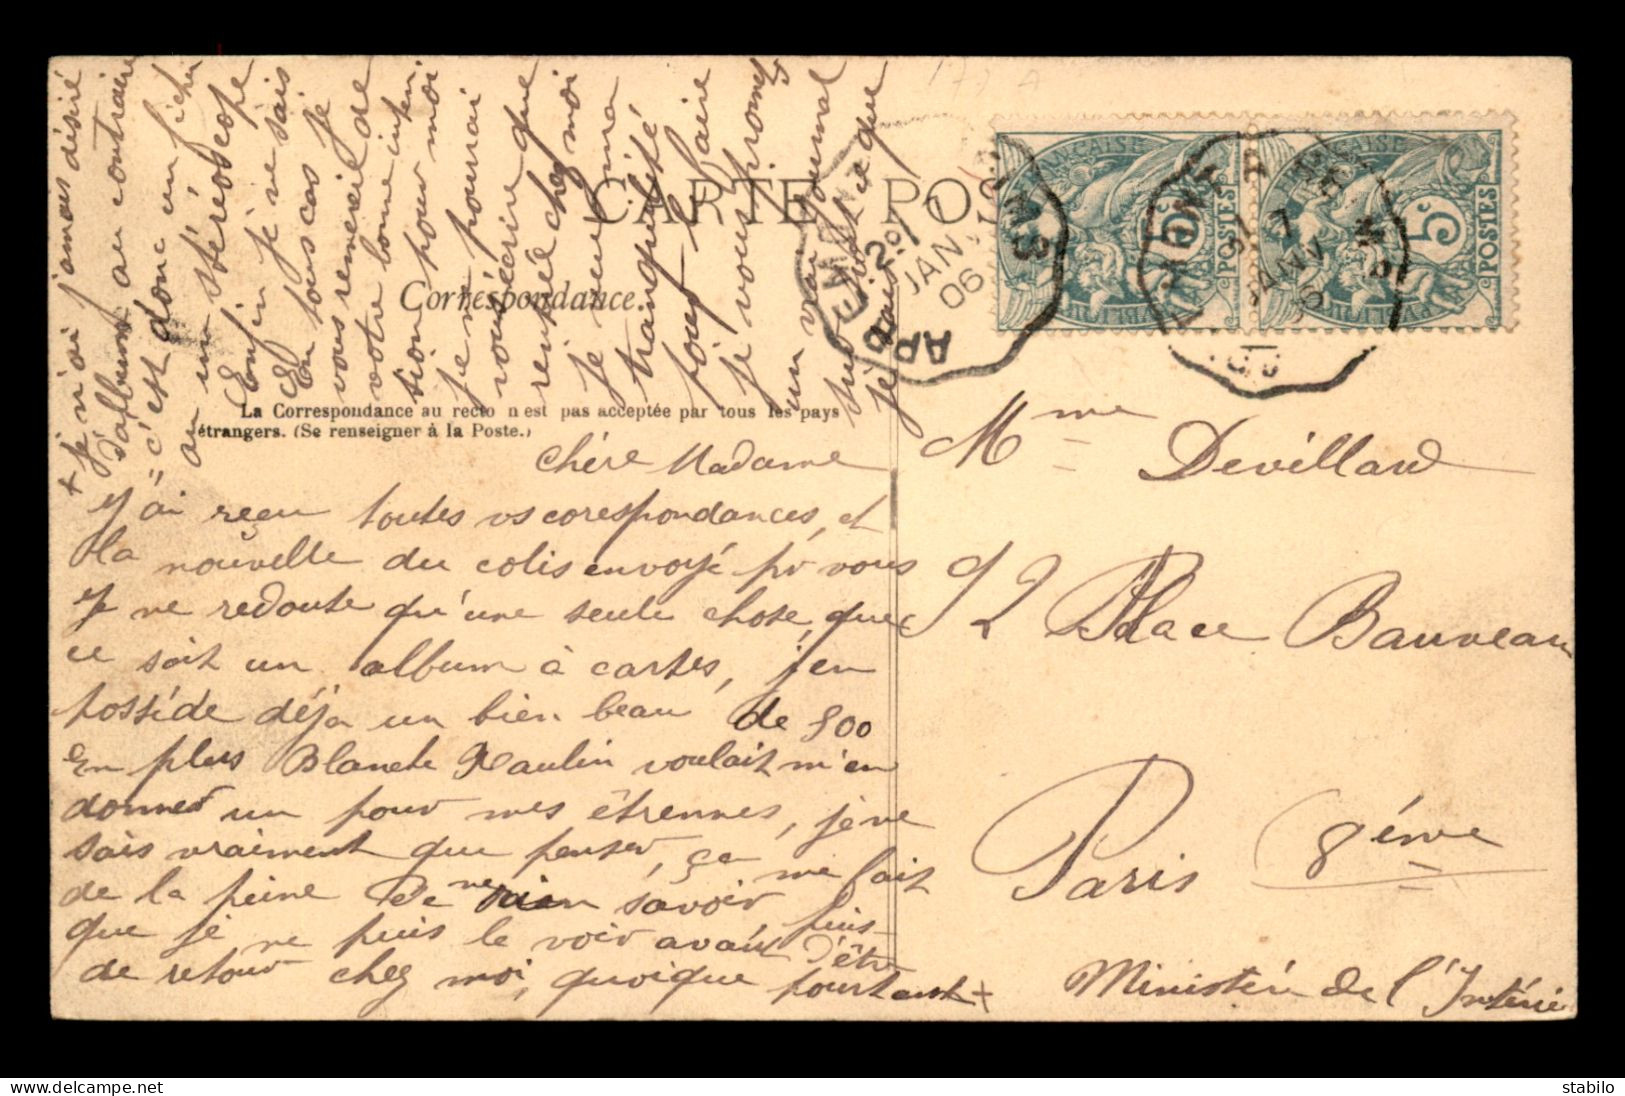 CARTE POS
Correspondance.
La Correspondance au recto n'est pas acceptée par tous les pays
étrangers. (Se renseigner à la Poste.)
chère Madame
J'ai reçu toutes vs corespondances, et
la nouvelle du colis envoyé pr vous
Je ne redoute qu'une seule chose, que
ce soit un album à cartes, j'en
possède déja un bien beau de 800
En plus Blanche Paulin voulait m'en
donner un pour mes étrennes, je ne
sais vraiment que penser, ça me fait
de la peine de ne rien savoir, puis
que je ne puis le voir avant d'être
de retour chez moi, quoique pourtant +
+ je n'ai jamais désiré
d'album au contraire
"c'est donc un fichu
ou un stéréoscope
Enfin je ne sais
En tous cas je
vous remercie de
votre bonne inten
tion pour moi
je ne pourrai
vous écrire que
rentrée chez moi
je veux ma
tranquilité
pour le faire
je vous promets
un vrai journal
sur tout ce que
j'aurai
Mme Devillard
12 Place Bauveau
Paris (8ème
Ministère de l'Intérie
FRANÇAISE
RÉPUBLIQUE
5c
POSTES
FRANÇAISE
RÉPUBLIQUE
5c
POSTES
2°/ 7
JANV
06
7
JANV
stabilo